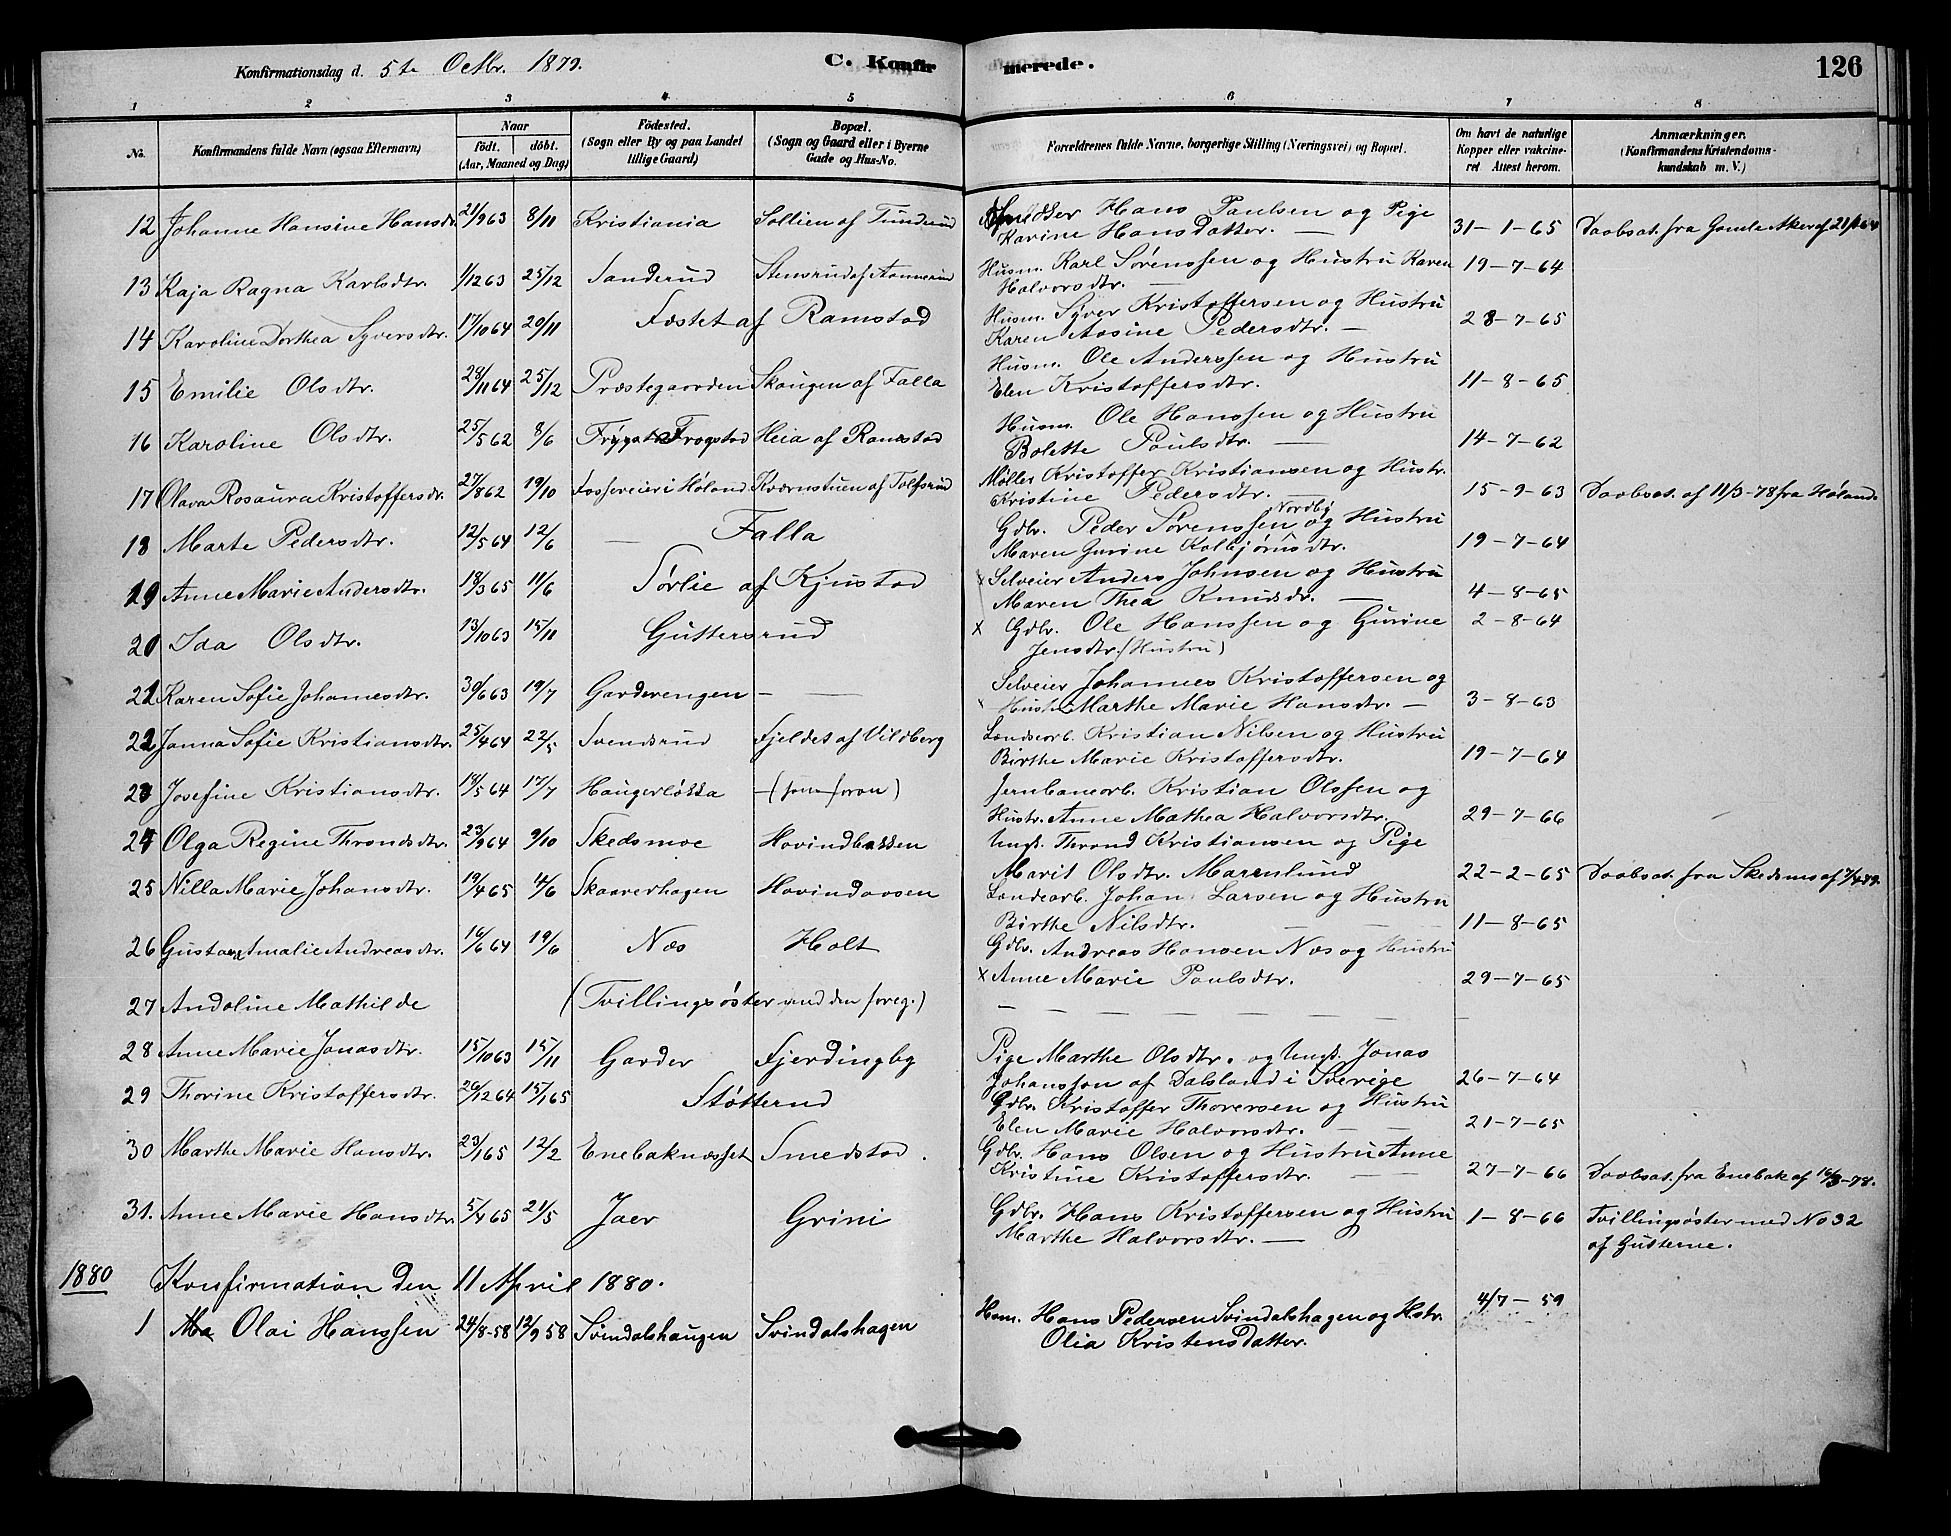 Konfirmationsdag d. 5te Octbr. 1879. C. Konfirmerede. 126
1 2 3 4 5 6 7 8
No. Konfirmandens fulde Navn (ogsaa Efternavn) Naar födt. döbt. (Aar, Maaned og Dag) Födested. (Sogn eller By og paa Landet tillige Gaard) Bopæl. (Sogn og Gaard eller i Byerne Gade og Hus-No. Forældrenes fulde Navne, borgerlige Stilling (Næringsvei) og Bopæl. Om havt de naturlige Kopper eller vakcineret Attest herom. Anmærkninger. (Konfirmandens Kristendomskundskab m. V.)
12 Johanne Hansine Hansdr. 21/9 63 8/11 Kristiania Sollien af Tunderud Hans Paulsen og Pige
Karine Hansdatter. — 31-1-65 Daabsat. fra Gamle Aker af
13 Kaja Ragna Karlsdtr. 1/12 63 25/12 Sanderud Stensrud af Husm. Karl Sørenssen og Hustru Karen
Halvorsdtr. — 19-7-64
14 Karoline Dorthea Syversdtr. 17/10 64 20/11 Fæstet af Ramstad Husm. Syver Kristoffersen og Hustru
Karen Aasine Pedersdtr. — 28-7-65
15 Emilie Olsdtr. 28/11 64 25/12 Præstegaarden Skaugen af Falla Husm. Ole Anderssen og Hustru
Elen Kristoffersdtr. 11-8-65
16 Karoline Olsdtr. 25/5 62 8/6 Frogstad Heia af Ramstad Husm. Ole Hanssen og Hustru
Bolette Paulsdtr. — 14-7-62
17 Olava Rosaura Kristoffersdr. 27/8 62 19/10 Fosserveier i Høland Kværnstuen af Tolfsrud Møller Kristoffer Kristiansen og Hustr.
Kristine Pedersdtr. — 15-9-63 Daabsat. af 11/3-78 fra Høland.
18 Marte Pedersdtr. 12/5 64 12/6 — Falla Gdbr. Peder Sørenssen Nordby og Hustru
Maren Gurine Kolbjørnsdtr. 19-7-64
19 Anne Marie Andersdtr. 18/3 65 11/6 Sørlie af Kjustad x Selveier Anders Johnsen og Hustru
Maren Thea Knudsdr. — 4-8-65
20 Ida Olsdtr. 13/10 63 15/11 Guttersrud x Gdbr. Ole Hanssen og Gurine
Jensdtr. (Hustru) 2-8-64
21 Karen Sofie Johanesdtr. 30/6 63 19/7 Garderengen — — Selveier Johannes Kristoffersen og
x Hustr. Marthe Marie Hansdtr. — 3-8-63
22 Janna Sofie Kristiansdtr. 25/4 64 22/5 Svendsrud Fjeldet af Vildberg Landearb. Kristian Nilsen og Hustru
Birthe Marie Kristoffersdtr. 19-7-64
23 Josefine Kristiansdtr. 18/5 64 17/7 Haugerløkka — (som foran) Jernbanearb. Kristian Olssen og
Hustr. Anne Mathea Halvorsdtr. 29-7-66
24 Olga Regine Throndsdtr. 23/9 64 9/10 Skedsmoe Hovindbakken Ungk. Thrond Kristiansen og Pige
Marit Olsdtr. Marenlund 22-2-65 Daabsat. fra Skedsmo af
25 Nilla Marie Johansdtr. 19/4 65 4/6 Skaarerhagen Hovindaasen Landearb. Johan Larsen og Hustru
Birthe Nilsdtr. — — 11-8-65
26 Gustava Amalie Andreasdtr. 16/6 64 19/6 Næs Holt Gdbr. Andreas Hansen Næs og Hustru
x Anne Marie Paulsdtr. 29-7-65
27 Andoline Mathilde (Tvillingsøster med den foreg.) — — — — — — —
28 Anne Marie Jonasdtr. 15/10 63 15/11 Garder Fjerdingby Pige Marthe Olsdtr. og Ungk. Jonas
Johansson af Dalsland i Sverige 26-7-64
29 Thorine Kristoffersdtr. 26/12 64 15/1 65 Støtterud Gdbr. Kristoffer Thoresen og Hustru
Elen Marie Halvorsdtr. — — 21-7-65
30 Marthe Marie Hansdtr. 23/1 65 12/2 Enebaknæsset Smedstad. Gdbr. Hans Olsen og Hustru Anne
Kristine Kristoffersdtr. — — 27-7-66 Daabsat. fra Enebak af 16/3-78.
31. Anne Marie Hansdtr 5/4 65 21/5 Jaer Grini Gdbr. Hans Kristoffersen og Hustru
Marthe Halvorsdtr. — 1-8-66 Tvillingsøster med No 32
af Gutterne.
1880 Konfirmation den 11 April 1880.
1 Olai Hanssen 24/8-58 12/9 58 Svindalshaugen Svindalshagen Hsm. Hans Pedersen Svindalshagen og Hstr.
Olia Kristensdatter. 4/7-59